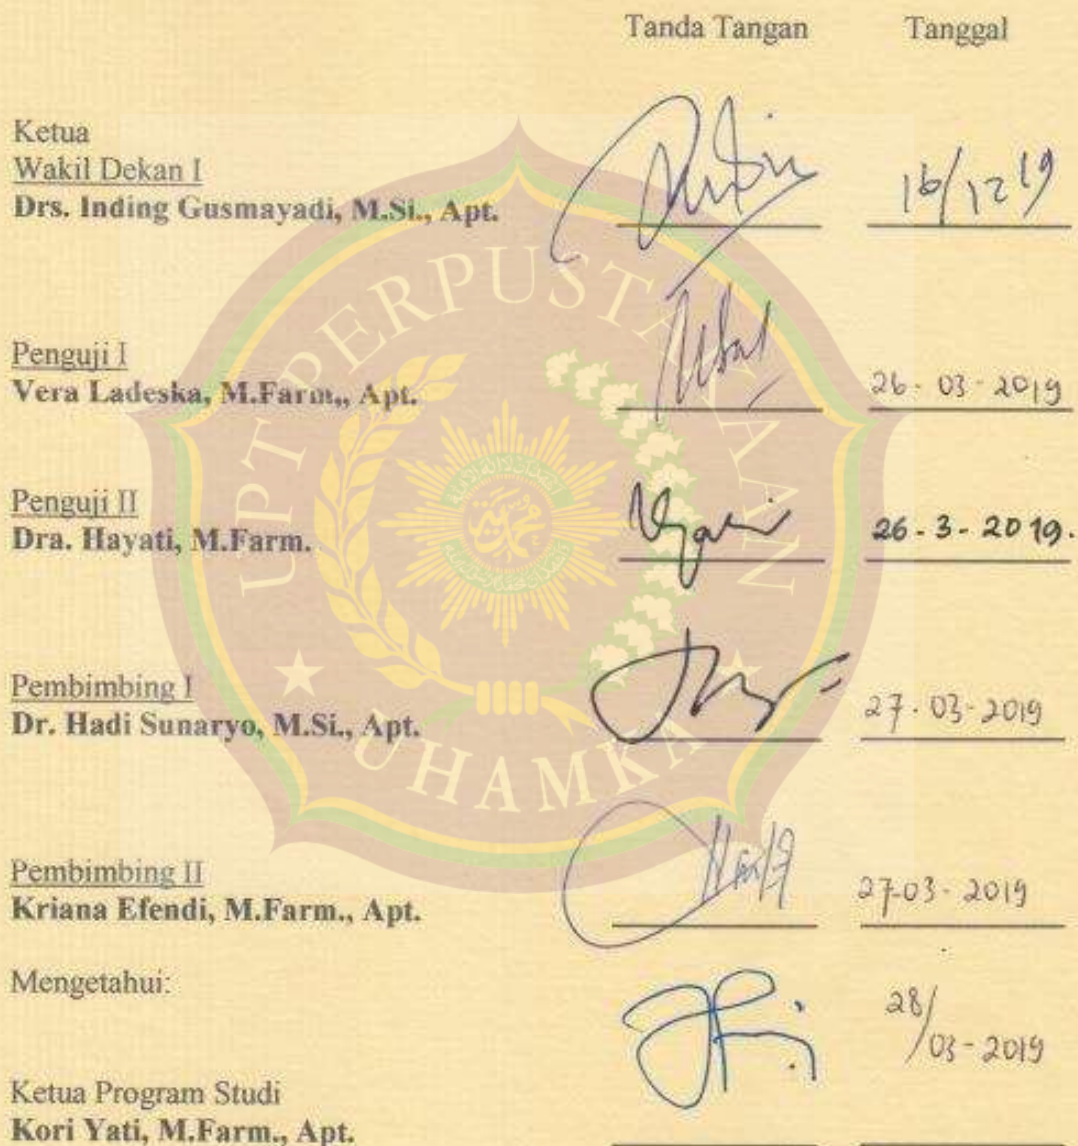 Tanda Tangan Tanggal
Ketua
Wakil Dekan I
Drs. Inding Gusmayadi, M.Si., Apt. 16/12 19
Penguji I
Vera Ladeska, M.Farm., Apt. 26-03-2019
Penguji II
Dra. Hayati, M.Farm. 26-3-2019.
Pembimbing I
Dr. Hadi Sunaryo, M.Si., Apt. 27-03-2019
Pembimbing II
Kriana Efendi, M.Farm., Apt. 27-03-2019
Mengetahui:
28/03-2019
Ketua Program Studi
Kori Yati, M.Farm., Apt.
UPT PERPUSTAKAAN
UHAMKA